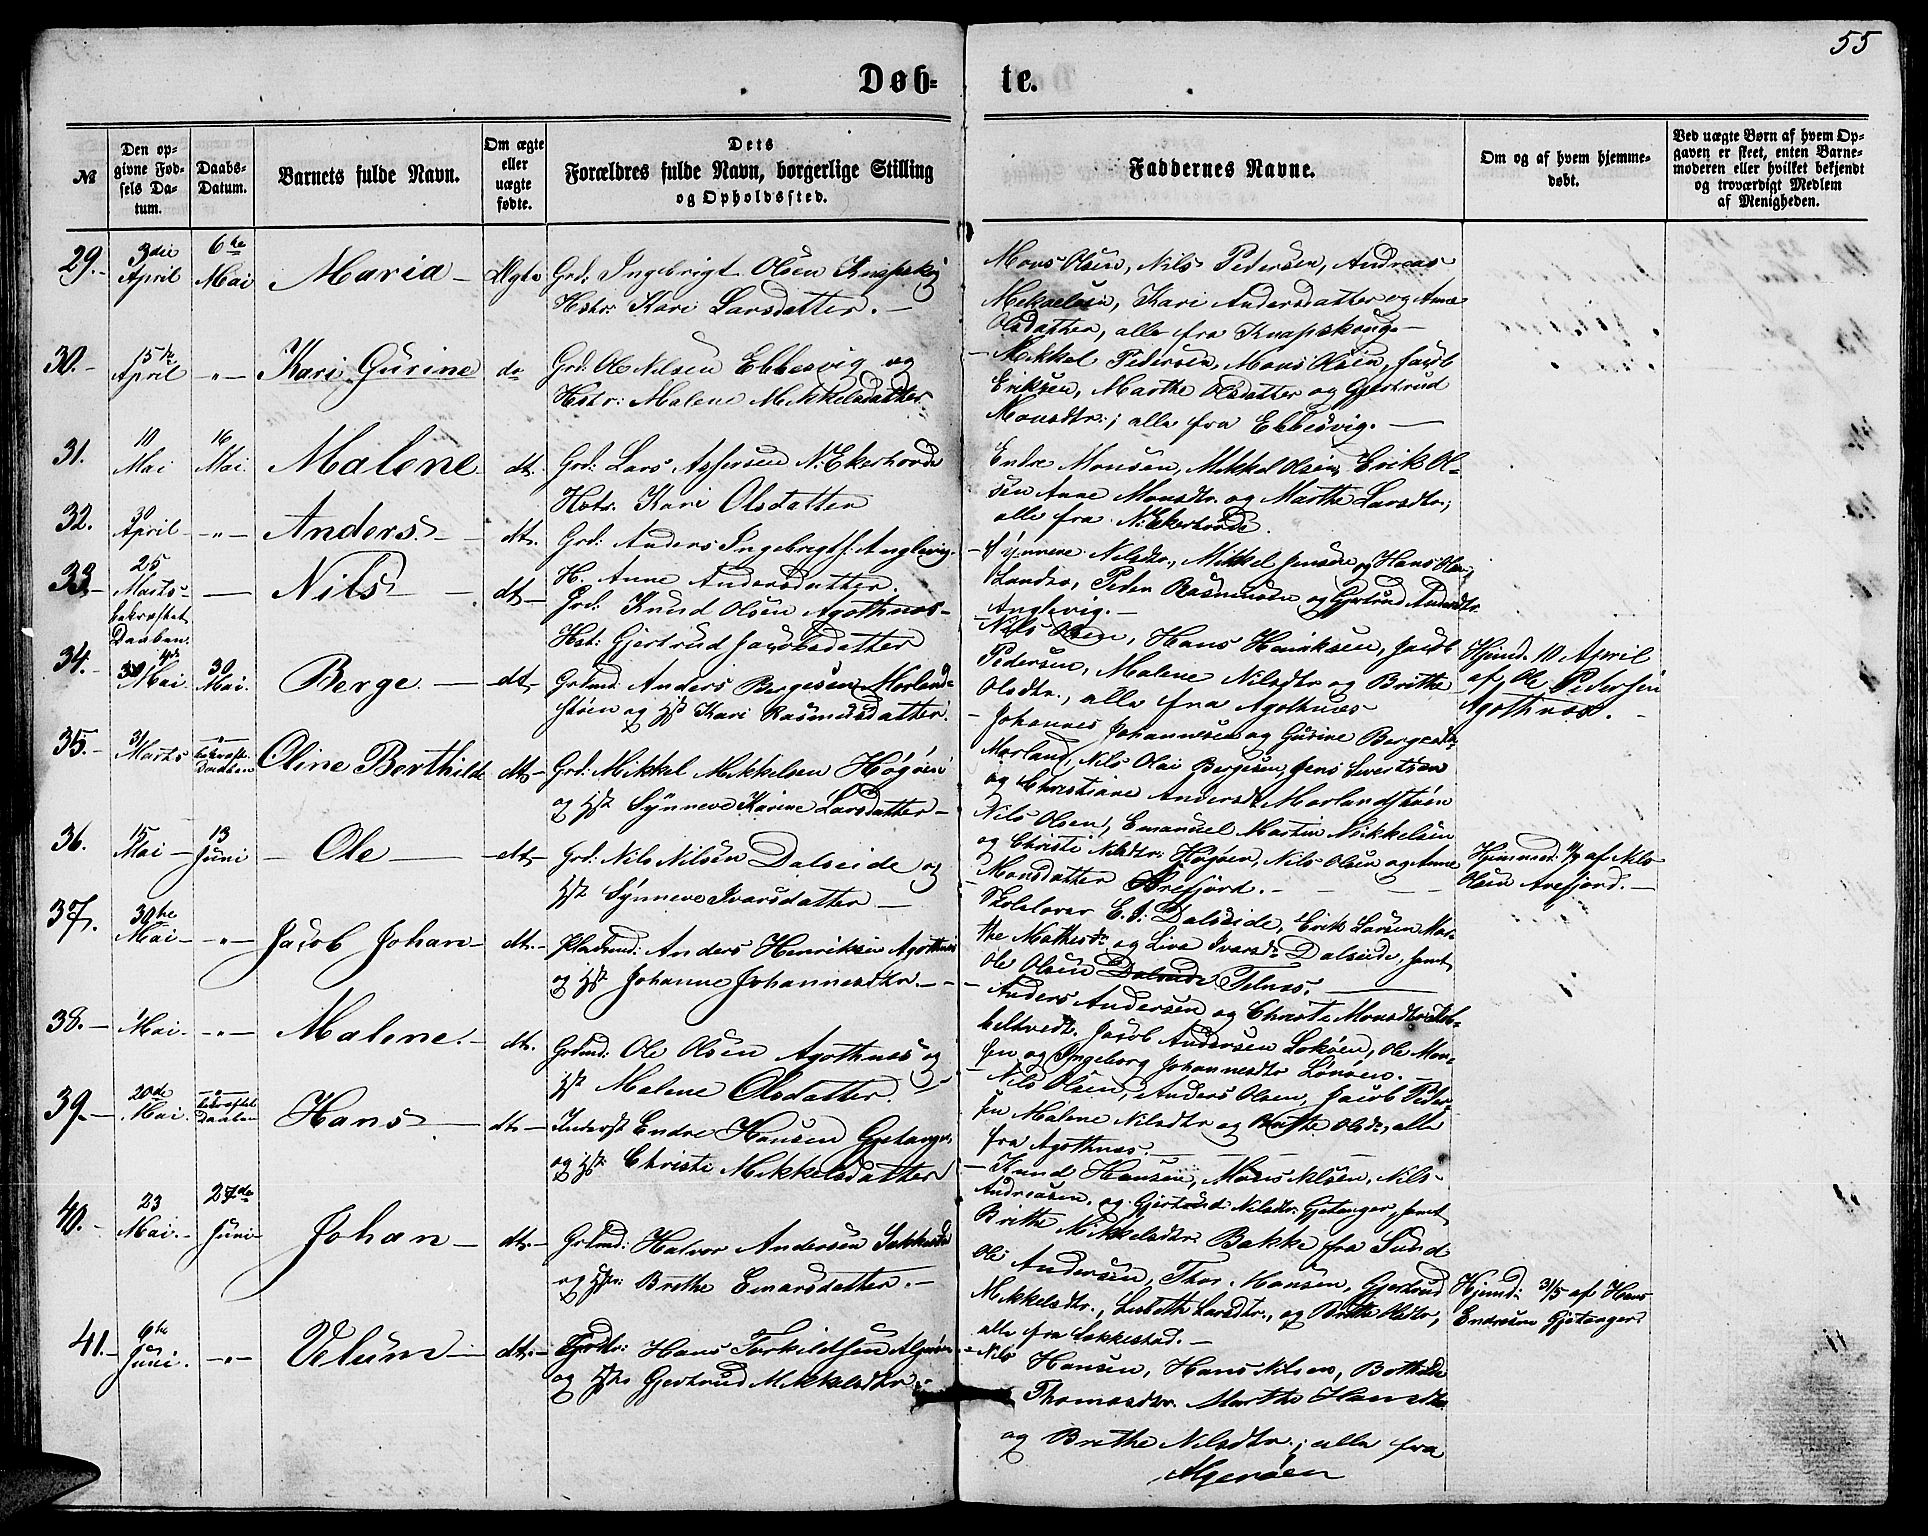 55
Døb-
te.
№
Den op-
givne Fød-
sels Da-
tum.
Daabs-
Datum.
Barnets fulde Navn.
Om ægte
eller
uægte
fødte.
Dets
Forældres fulde Navn, borgerlige Stilling
og Opholdssted.
Faddernes Navne.
Om og af hvem hjemme-
døbt.
Ved uægte Børn af hvem Op-
gaven er skeet, enten Barne-
moderen eller hvilket bekjendt
og troværdigt Medlem
af Menigheden.
29.-
3die
April
6te
Mai
Maria -
Ægte
Grd: Ingebrigt Olsen Knapskog
Hstr: Kari Larsdatter. -
Mons Olsen, Nils Pedersen, Andreas
Mekaelsen, Kari Andersdatter og Anne
Olsdatter, alle fra Knapskoug -
30.-
15de
April
-"-
Kari Gurine
do
Grd. Ole Nilsen Ebbesvig og
Hstr: Malene Mikkelsdatter
- Mikkel Pedersen, Mons Olsen, Jacob
Eriksen, Marthe Olsdatter og Gjertrud
Monsdtr.; alle fra Ebbesvig. -
31.
10
Mai
16
Mai
Malene
dt.
Grd: Lars N: Ekerhovde
Hstr. Kari Olsdatter
Endre Monsen, Mikkel Olsen, Erik Ol-
sen Anne Monsdtr. og Marthe Larsdtr;
alle fra N: Ekerhovde.
32.
30
April
-"-
Anders. -
dt.
Grd: Anders Ingebrigts: Anglevig.
H. Anne Andersdatter.
- Synneve Nilsdtr., Mikkel Jensen og Hans Olsen
Peder Rasmussen og Gjertrud Andersdtr
Anglevig. -
33.-
25
Marts-
bekræftet
Daaben
-
Nils -
dt -
Grd: Knud Olsen Agothnæs-
Hst: Gjertrud Jacobsdatter
- Nils Olsen, Hans Henriksen, Jacob
Pedersen, Malene Nilsdtr og Brithe
Olsdtr., alle fra Agothnæs
Hjemd. 10 April
af, Ole Pedersen
Agothnæs. -
34.-
Mai
30
Mai.
Berge. -
dt -
Grdmd: Anders Bergesen Morland-
støen og Hst Kari Rasmusdatter.
- Johannes Johannesen og Gurine Bergesdtr
Morland, Nils Olai Bergesen, Jens Sivertsen
og Christiane Andersdt Morlandstøen
35.-
31
Marts
-"-
bekræft.
Daaben
Oline Berthilde
dt -
Grd: Mikkel Mikkelsen Høgøen
og Hst Synneve Karine Larsdatter -
Nils Olsen, Emanuel Martin Mikkelsen
og Christi Nilsdtr: Høgøen, Nils Olsen og Anne
- Monsdatter Arefjord. - - -
Hjemmed: af Nils
Olsen Arefjord. -
36.
15
Mai -
13
Juni
- Ole -
dt -
Grd: Nils Nilsen Dalseide og
Hst Synneve Ivarsdatter -
- Skolelærer E. J: Dalseide, Erik Larsen Mar-
the Mathisdt og Liva Ivarsdt Dalseide, samt
Ole Olsen Dalseide Telnæs. -
37.
30te
Mai -
-"-
Jacob Johan -
dt. -
Pladsmd: Anders Henriksen Agothnæs
og Hst Johanne Johannesdtr. - -
- Anders Andersen og Christi Monsdtr
Jacob Andersen Lokøen, Ole Mon-
sen og Ingeborg Johannesdtr Lønøen. -
38.-
1
Mai.
-"-
Malene. -
dt.
Grdmd: Ole Olsen Agothnæs og
Hst Malene Olsdatter. -
- Nils Olsen, Anders Olsen, Jacob Peder-
sen Malene Nilsdtr og Brithe Olsdt, alle
fra Agothnæs. - - -
39.-
20de
Mai.
-"-
bekræftet
Daaben
Hans -
dt. -
Inderst Endre Hansen Gjetanger
og Hst Christi Mikkelsdatter
- Knud Hansen, Mons Nilsen, Nils
Andreasen, og Gjertrud Nilsdtr: Gjetanger, samt
Brithe Mikkelsdtr: Bakke fra Sund
Hjemd: 31/5 af Hans
Endresen Gjetanger
40.-
23
Mai. -
27de
Juni
Johan -
dt. -
Grdmd: Halvor Andersen
og Hstr: Brithe Emarsdatter. -
Ole Andersen, Thor Hansen, Gjertrud
Mikkelsdtr., Lisbeth Larsdtr., og Brithe Olsdtr,
alle fra Sekkestad. -
41.-
6te
Juni.
-"-
Velum -
dt. -
Grdbr: Hans Torkildsen Algerøen
og Hst Gjertrud Mikkelsdtr. -
- Nils Hansen, Hans Nilsen, Bothilde
Thomasdtr. Marthe Hansdtr
og Brithe Nilsdtr.; alle fra
Algerøen